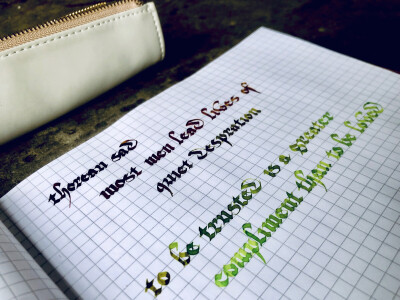 thoreau sad
most men lead lives of
quiet despration
to be trusted is a greater
compliment than to be loved